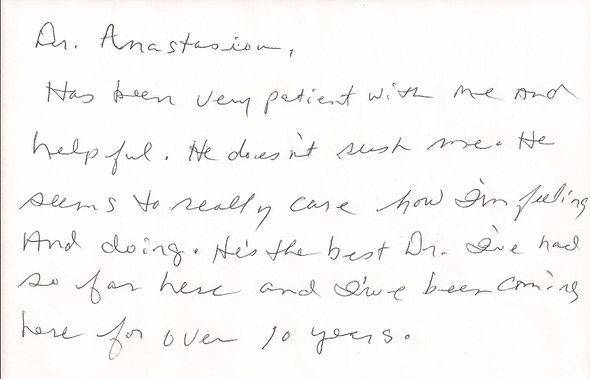 Dr. Anastasion,
Has been very patient with me And
helpful. He doesn't rush me. He
seems to really care how I'm feeling
And doing. He's the best Dr. I've had
so far here and I've been coming
here for over 10 years.